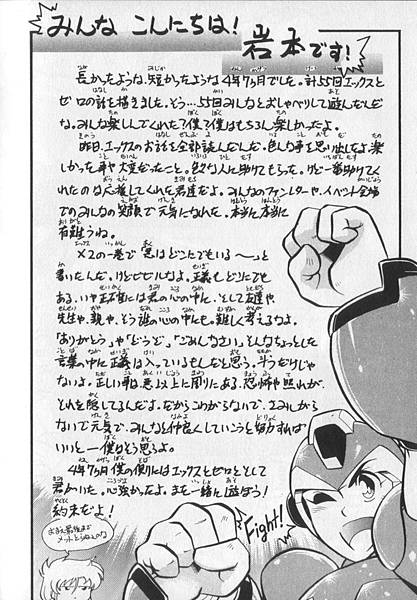 みんな こんにちは!
岩本です!
長かったような、短かったような4年7ヶ月でした。計55回エックスと
ゼロの話を描きました。そう…55回みんなとおしゃべりして遊んだんだ
な。みんな楽しんでくれた?僕?僕はもちろん楽しかったよ。
昨日、エックスのお話を全部読んだんだ。色んな事を思い出したよ。楽し
かった事や大変だったこと。色んな人に助けてもらった。けど一番助けてく
れたのは応援してくれた君達だよ。みんなのファンレターや、イベント会場
でのみんなの笑顔で元気になれた。本当に本当に
有難うね。
X2の一巻で「悪はどこにでもいる〜」と
書いたんだ。けどビビルなよ。正義もどこにでも
ある。いや正確には君の心の中に、そして友達や
先生や、親や、そう誰の心の中にも。難しく考えるなよ。
「ありがとう」や「どうぞ」、「ごめんなさい」そんなちょっとした
言葉の中に正義は入っているもんだと思う。斗うだけじゃ
ないよ。正しい事は悪以上に周りにある。恐怖や照れが、
それを隠してるんだよ。だからこわがらないで、さみしがら
ないで元気で、みんなと仲良くしていこうと努力すれば
いいと一僕はそう思うよ。
4年7ヶ月僕の傍りにはエックスとゼロとそして
君がいた。心強かったよ。また一緒に遊ぼう!
約束だよ!
おまえ最後まで
メットとらねーのな
Fight!